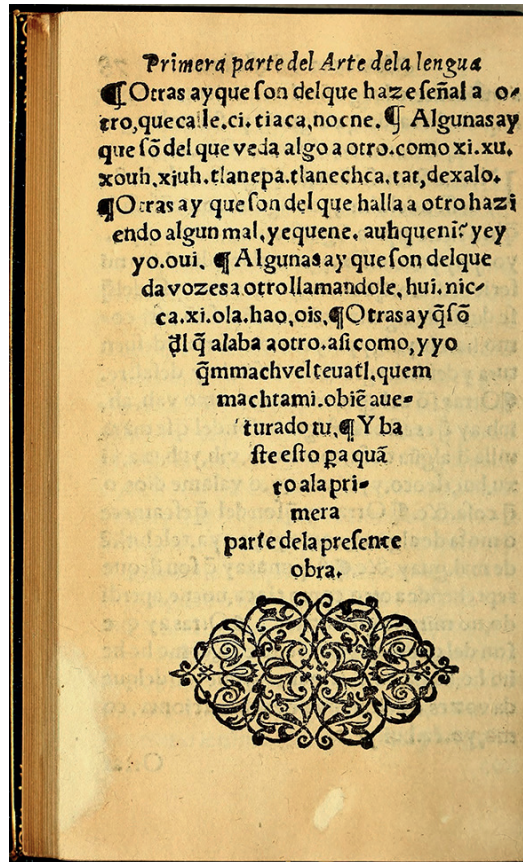 Primera parte del Arte dela lengua
¶ Otras ay que ſon delque haze ſeñal a o-
tro, que calle. ci. tiaca, nocne. ¶ Algunas ay
que ſõ del que veda algo a otro. como xi. xu.
xouh. xiuh. tlanepa. tlanechca. tat, dexalo.
¶ Otras ay que ſon del que halla a otro hazi
endo algun mal, yequene. auhqueni? yey
yo. oui. ¶ Algunas ay que ſon delque
da vozes a otro llamandole, hui. nic-
ca. xi. ola. hao, ois, ¶ Otras ay q̃ ſõ
d̃l q̃ alaba aotro. aſi como, yyo
q̃mmachvelteuatl, quem
machtami. obiẽ aue-
turado tu, ¶ Y ba
ſte eſto ꝑa quã
to ala pri-
mera
parte dela preſente
obra.